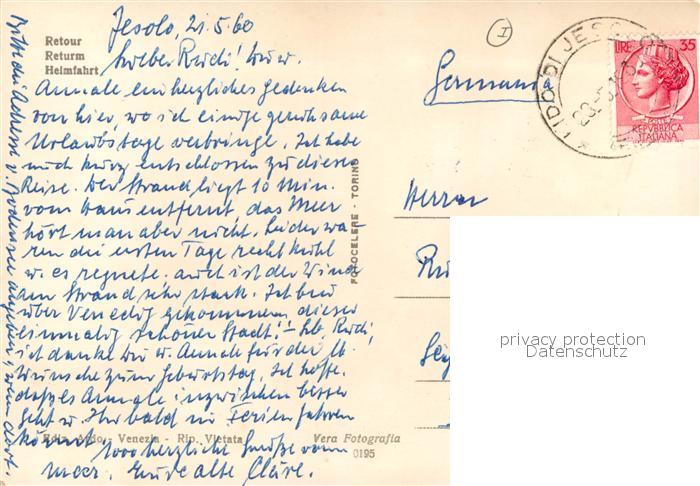 Jesolo, 21.5.60
Retour
Returm
Heimfahrt
Lieber Rudi! Dir u.
Annale ein herzliches Gedenken
von hier, wo ich einige geruhsame
Urlaubstage verbringe. Ich habe
mich kurz entschlossen zu dieser
Reise. Der Strand liegt 10 Min.
vom Haus entfernt, das Meer
hört man aber nicht. Leider wa-
ren die ersten Tage recht kühl
u. es regnete. Auch ist der Wind
am Strand sehr stark. Ich bin
über Venedig gekommen, dieser
einmalig schönen Stadt! – Lb. Rudi,
ich danke Dir u. Annale für die lb.
Wünsche zum Geburtstag. Ich hoffe,
daß es Annale inzwischen besser
geht u. Ihr bald in Ferien fahren
könnt.
1000 herzliche Grüße vom
Meer. Eure alte Cläre.
Bitte die Adresse v. Bodensee angeben, wenn dort.
Ediz. Ardo - Venezia - Rip. Vietata
Vera Fotografia
0195
FOTOCELERE - TORINO
I
Germania
LIDO DI JESOLO
LIRE 35
REPVBBLICA
ITALIANA
Herrn
privacy protection
Datenschutz